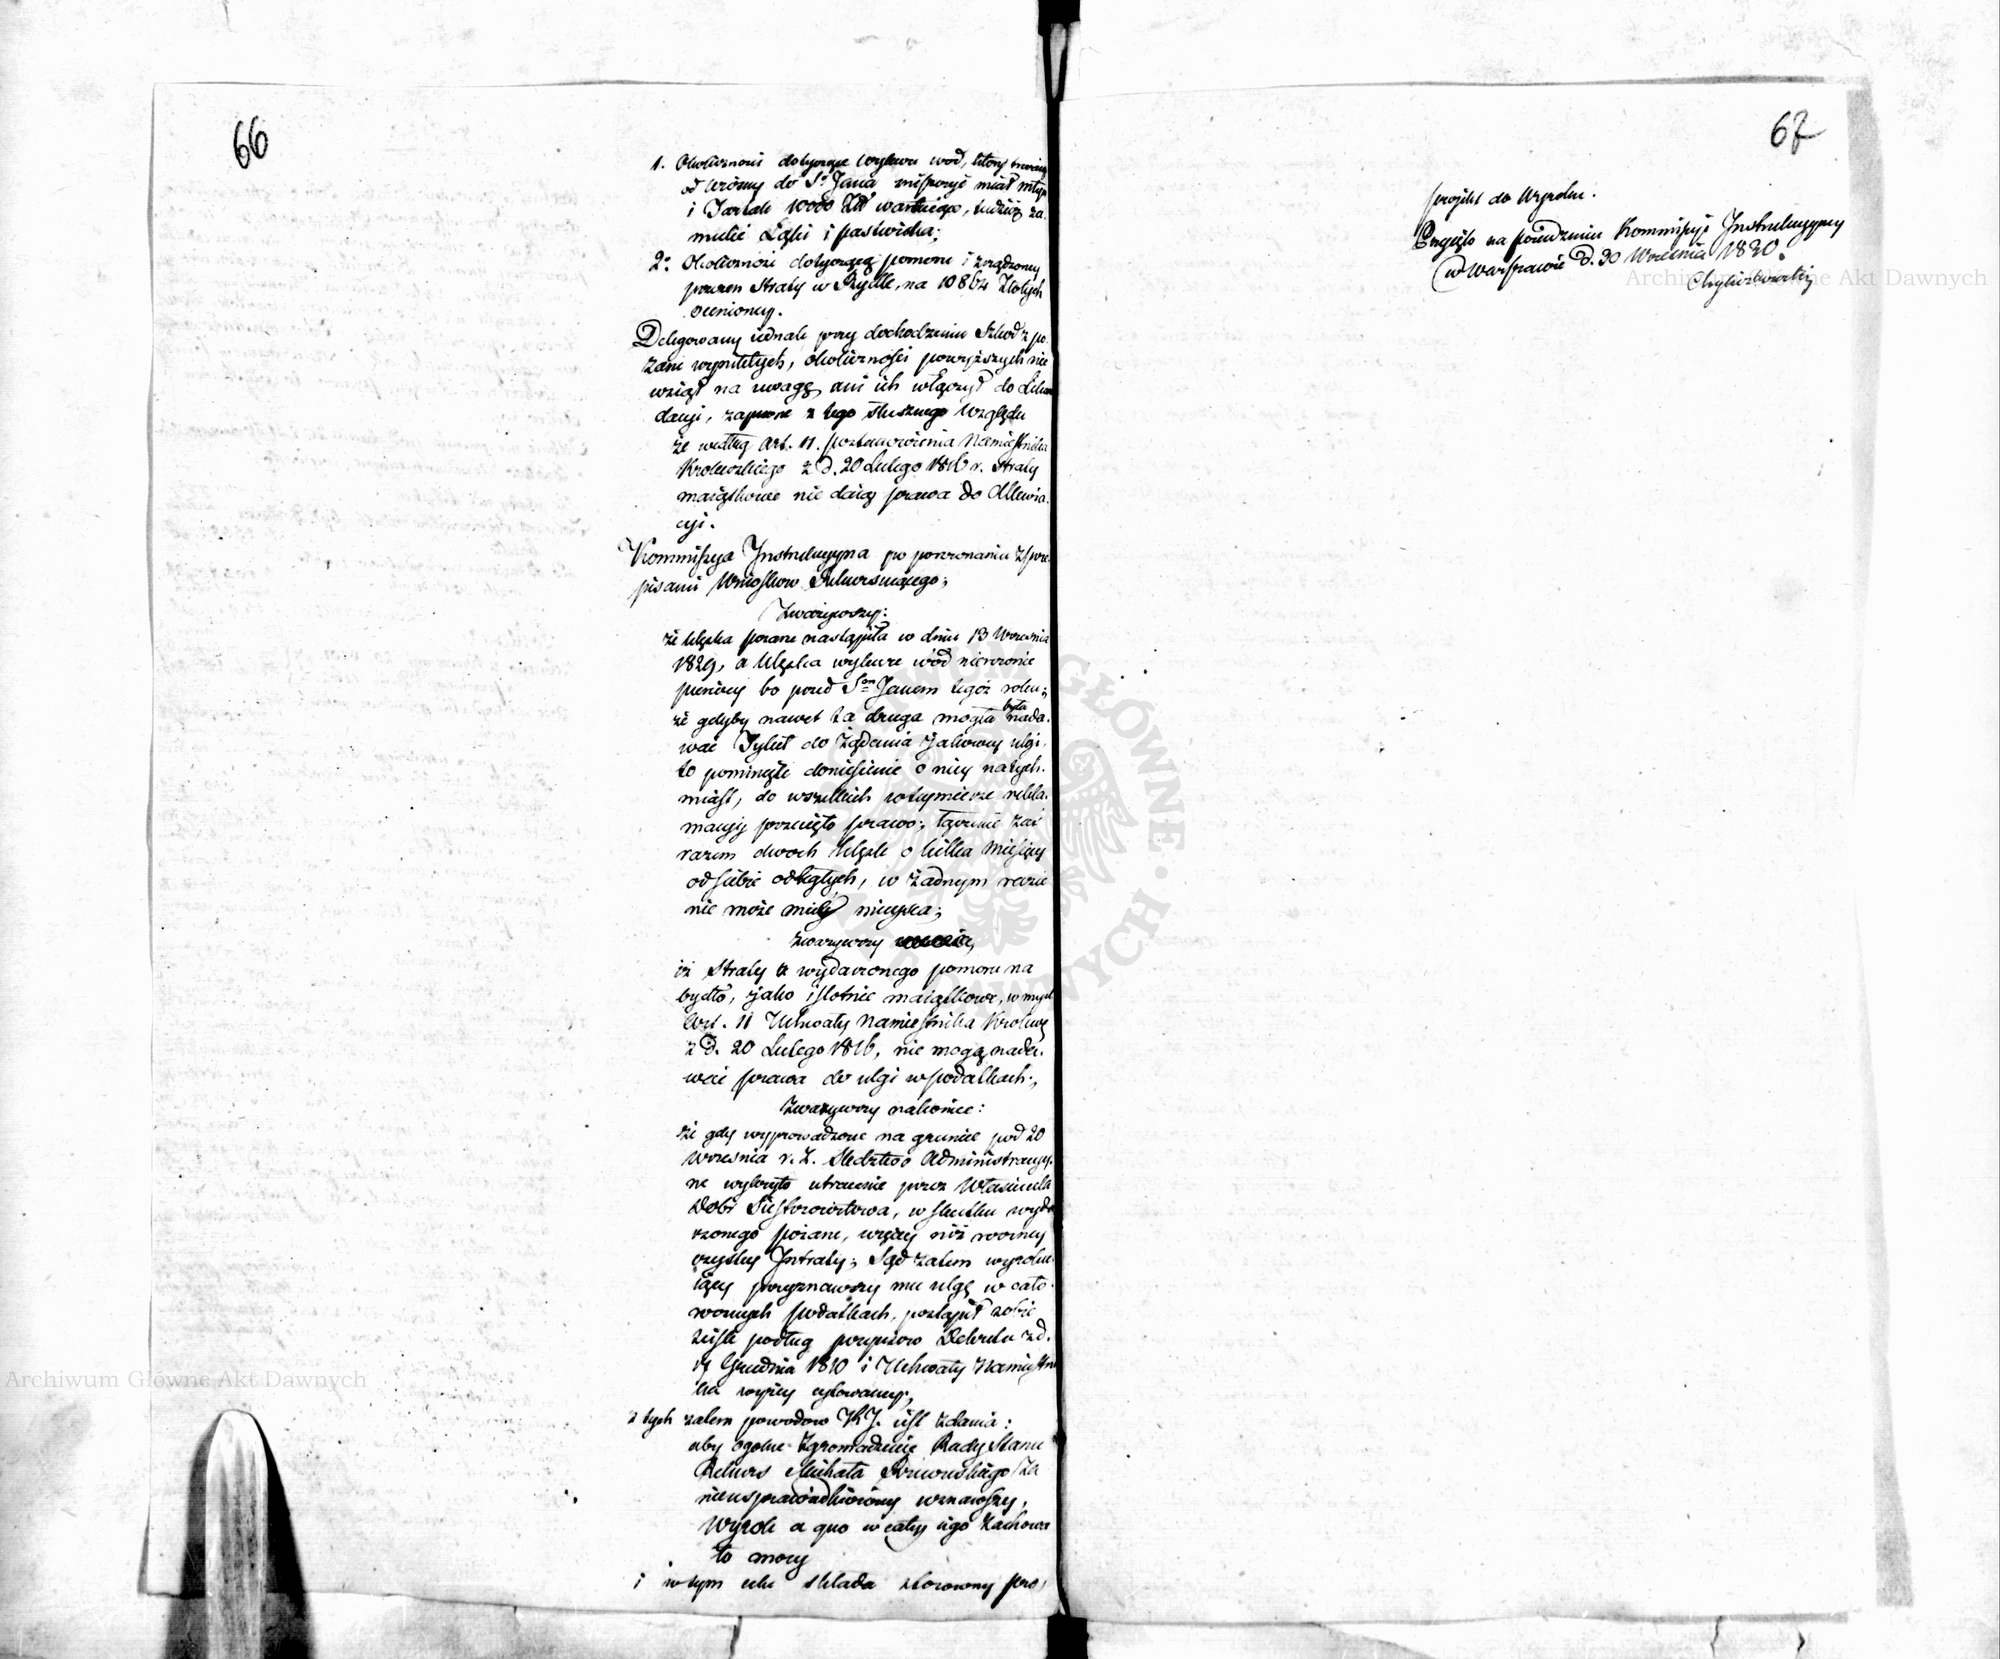 66
1. Okoliczność dotyczące wylewu wód, który trwaiąc
od wiosny do Sº Jana zniszczyć miał młyn
i Tartak 10000 Złł wartuiące, tudzież za-
mulić Łąki i pastwiska;
2º Okoliczność dotyczącą pomoru i zrządzoney
przezeń straty w Bydle, na 10864 Złotych
ocenioney.
Delegowany iednak przy dochodzeniu Szkód z po-
żaru wynikłych, okoliczności powyższych nie
wziął na uwagę ani ich włączył do Likwi-
dacyi, zapewne z tego słusznego względu
że według art. 11. postanowienia Namiestnika
Krolewskiego z d. 20 Lutego 1816 r. straty
maiątkowe nie daią prawa do Allewia-
cyi.
Kommissya Instrukcyyna po porównaniu z prze-
pisami Wniosków Rekursuiącego;
Zważywszy:
że klęska pożaru nastąpiła w dniu 13 Września
1829, a klęska wylewu wód nierównie
pierwey bo przed Sym Janem tegoż roku;
że gdyby nawet ta druga mogła była nada-
wać Tytuł do żądania jakowey ulgi,
to pominięte doniesienie o niey natych-
miast, do wszelkich w tey mierze rekla-
macyy przecięło prawo; łączenie zaś
razem dwoch klęsk o kilka miesięcy
od siebie odległych, w żadnym razie
nie może mieć mieysca;
Zważywszy
iż straty z wydarzonego pomoru na
bydło, jako istotnie maiątkowe, w myśl
Art. 11 Uchwały Namiestnika Krolewº
z d. 20 Lutego 1816, nie mogą nada-
wać prawa do ulgi w podatkach;
Zważywszy nakoniec:
że gdy wyprowadzone na gruncie pod 20
Września r. z. śledztwo Administracyy-
ne wykryło utracenie przez Właściciela
Dóbr, w skutku wyda-
rzonego pożaru, więcey niż roczney
czystey Intraty; Sąd zatem wyroku-
iący przyznawszy mu ulgę w cało-
rocznych podatkach, postąpił sobie
ściśle podług przepisów Dekretu z d.
Grudnia 1810 i Uchwały Namiestni-
ka wyżey cytowaney;
z tych zatem powodów K. J. iest zdania:
aby ogólne Zgromadzenie Rady Stanu
Rekurs Michała za
nieusprawiedliwiony uznawszy,
Wyrok a quo w całey iego zachowa-
ło mocy
i w tym celu składa stosowny pro-
67
jekt do Wyroku.
Przyjęto na posiedzeniu Kommissyi Instrukcyyney
w Warszawie d. 30 Września 1830.
Archiwum Główne Akt Dawnych
Archiwum Główne Akt Dawnych